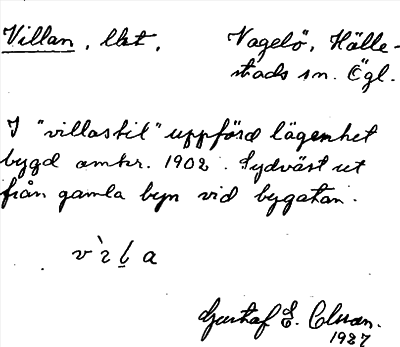 Villan, lht, Vagelö, Hälle-
stads sn. Ögl.
I "villastil" uppförd lägenhet
bygd omkr. 1902. Sydväst ut
från gamla byn vid bygatan.
Gustaf E.
1937